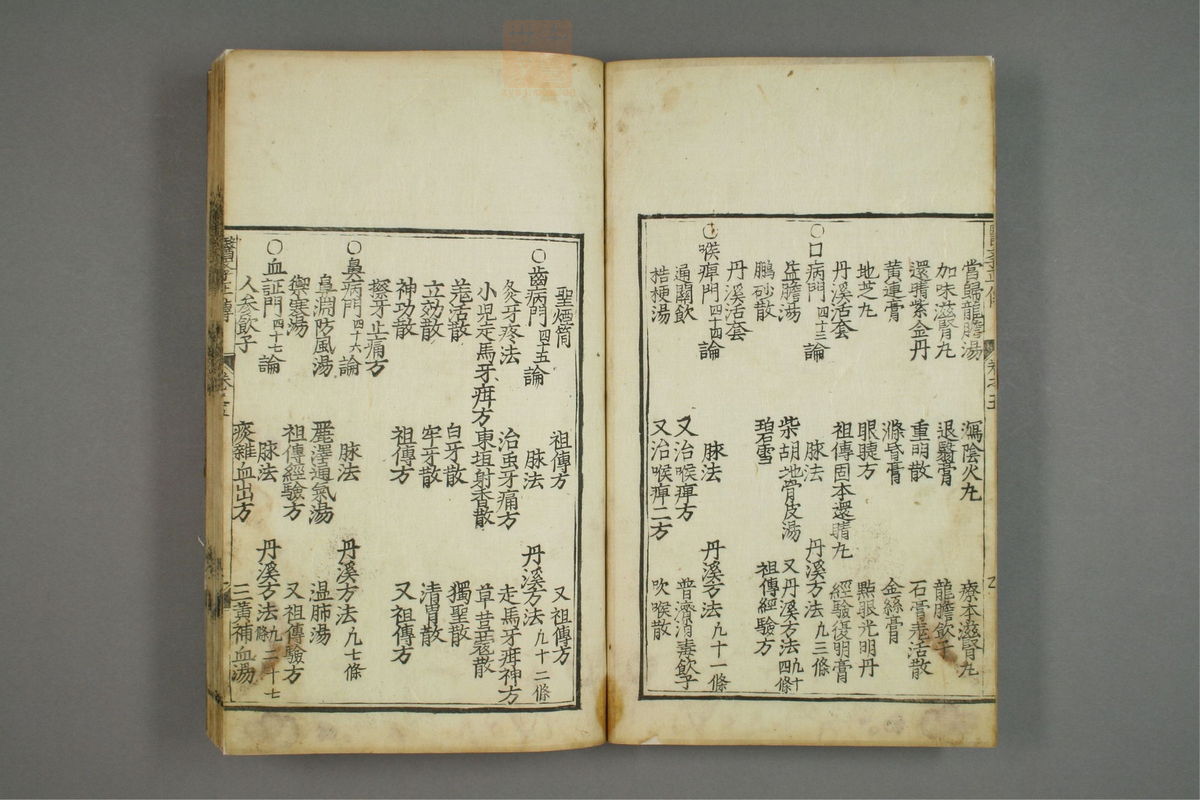 當歸龍膽湯 瀉陰火丸 療本滋腎丸
加味滋腎丸 退翳膏 龍膽飲子
還睛紫金丹 重明散 石膏羌活散
黄連膏 滌昏膏 金絲膏
地芝丸 眼䁾方 㸃眼光明丹
丹溪活套 祖傳固本還睛丸 經驗優明膏
○口病門四十三論 脉法 丹溪方法凡三條
益膽湯 柴胡地骨皮湯 又丹溪方法凡十四條
鵬砂散 碧雪 祖傳經驗方
丹溪活套
○喉痺門四十四論 脉法 丹溪方法凡十一條
通關飲 又治喉痺方 普濟消毒飲子
桔梗湯 又治喉痺二方 吹喉散
醫學正傳 卷之五
聖煙筒 祖傳方 又祖傳方
○齒病門四十五論 脉法 丹溪方法凡十二條
灸牙疼法 治虫牙痛方 走馬牙疳神方
小児走馬牙疳方 東垣射香散 草荳蔲散
羗活散 白牙散 獨聖散
立効散 牢牙散 清胃散
神功散 祖傳方 又祖傳方
擦牙止痛方
○鼻病門四十六論 脉法 丹溪方法凡七條
鼻淵防風湯 麗澤通氣湯 温肺湯
禦寒湯 祖傳經驗方 又祖傳驗方
○血証門四十七論 脉法 丹溪方法凡二十七條
人參飲子 瘊雜血出方 三黄補血湯
醫學正傳 卷之五